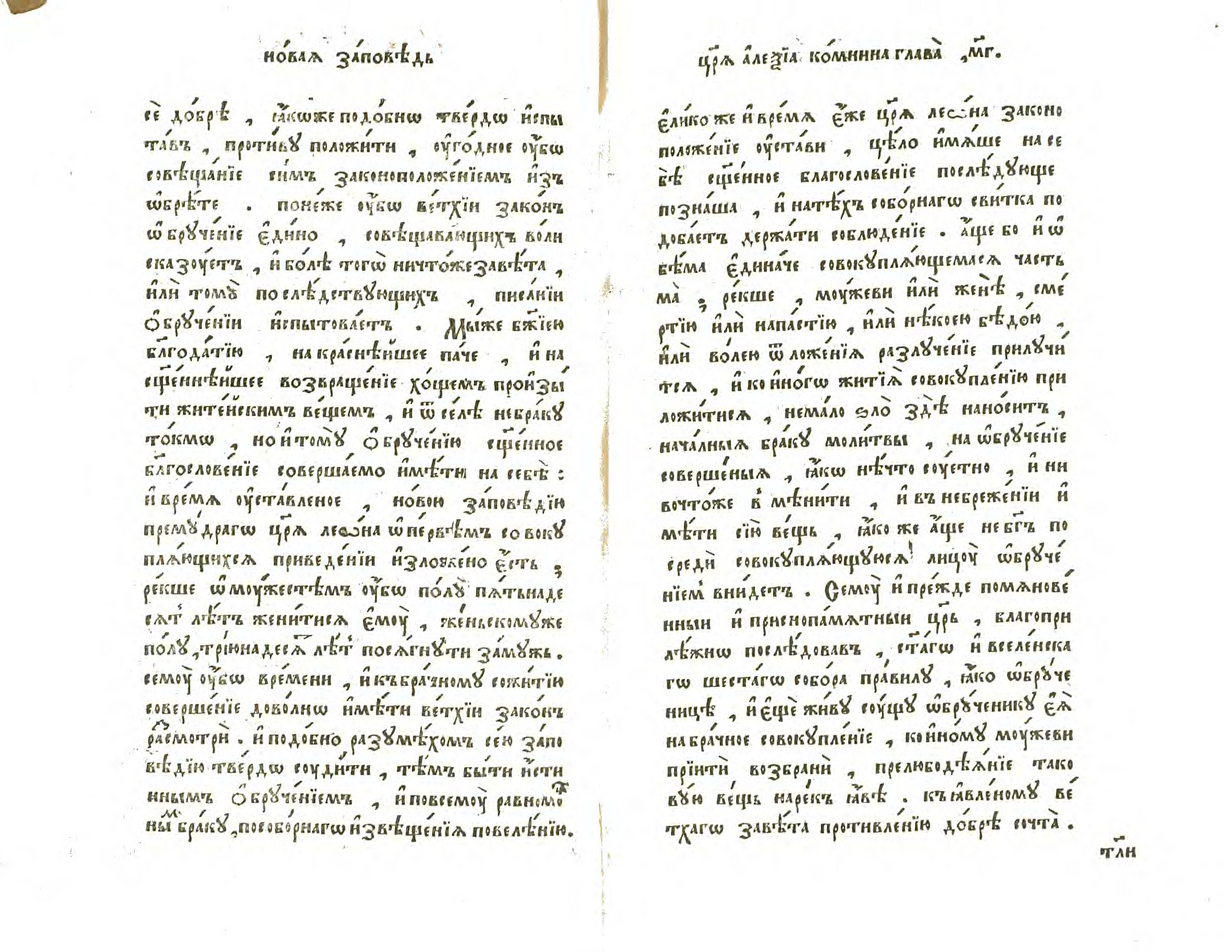 но́ваѧ за́повѣдь
сѐ до́брѣ , ꙗ҆́коже подо́бнѡ тве́рдѡ и҆спы
та́въ , проти́вꙋ положи́ти , ᲂу҆го́дное ᲂу҆́бѡ
совѣща́нїе си́мъ законоположе́нїемъ и҆зъ
ѡ҆брѣ́те . поне́же ᲂу҆́бѡ ве́тхїи зако́нъ
ѡ҆брꙋче́нїе є҆ди́но , совѣщава́ющихъ во́ли
ска́зꙋетъ , и҆ бо́лѣ того̀ ничто́же завѣ́та ,
и҆лѝ томꙋ̀ послѣ́дствꙋющихъ , писа́нїи
ѻ҆брꙋче́нїи и҆спытова́етъ . Мы́же бж҃їею
благода́тїю , на краснѣ́йшее па́че , и҆ на
сщ҃еннѣ́йшее возвраще́нїе хо́щемъ произы́
ти жите́йскимъ ве́щемъ , и҆ ѿсе́лѣ не бра́кꙋ
то́кмѡ , но и҆ томꙋ̀ ѻ҆брꙋче́нїю сщ҃е́нное
благослове́нїе соверша́емо и҆мѣ́ти на себѣ̀ :
и҆ вре́мѧ ᲂу҆ста́вленое , но́вою за́повѣдїю
премꙋ́драгѡ цр҃ѧ̀ леѡ́на ѡ҆ пе́рвѣмъ совокꙋ
плѧ́ющихсѧ приведе́нїи и҆зложе́но є҆́сть ;
ре́кше ѡ҆ мꙋ́жестѣмъ ᲂу҆́бѡ по́лꙋ̀ пѧтьнаде
сѧт̾ лѣ́тъ жени́тисѧ є҆мꙋ̀ , же́ньскомꙋже
по́лꙋ , трїюна́десѧт лѣ́т посѧгнꙋ́ти за́мꙋжь .
семꙋ̀ ᲂу҆́бѡ вре́мени , и҆ къ бра́чномꙋ сожи́тїю
соверше́нїе дово́лнѡ и҆мѣ́ти ве́тхїи зако́нъ
разсмотрѝ . и҆ подо́бно разꙋмѣ́хомъ се́ю за́по
вѣдїю тве́рдѡ сꙋди́ти , тѣ́мъ бы́ти и҆́сти
ннымъ ѻ҆брꙋче́нїемъ , и҆ по всемꙋ̀ равномо́
ны́м бра́кꙋ , по собо́рнагѡ и҆звѣще́нїѧ повелѣ́нїю .
цр҃ѧ̀ а҆леѯі́а комнина глава̀ , м҃г .
є҆ли́ко же и҆ вре́мѧ є҆́же цр҃ѧ̀ леѡ́на законо
положе́нїе ᲂу҆ста́ви , цѣ́ло и҆мѧ́ше на се
бѣ̀ сщ҃е́нное благослове́нїе послѣ́дꙋюще
позна́ша , и҆ на тѣ́хъ собо́рнагѡ сви́тка по
доба́етъ держа́ти соблюде́нїе . а҆́ще бо и҆ ѡ
бѣ́ма є҆дина́че совокꙋплѧ́ющемасѧ часть
ма̀ ; ре́кше , мꙋ́жеви и҆лѝ женѣ̀ , сме́
ртїю и҆лѝ напа́стїю , и҆лѝ нѣ́коею бѣдо́ю ,
и҆лѝ во́лею ѿложе́нїѧ разлꙋче́нїе прилꙋчи́
тсѧ , и҆ ко и҆но́гѡ житїѧ̀ совокꙋпле́нїю при
ложи́тисѧ , нема́ло ѕло̀ здѣ̀ нано́ситъ ,
нача́лныѧ бра́кꙋ моли́твы , на ѡ҆брꙋче́нїе
соверше́ныѧ , ꙗ҆́кѡ нѣ́что сꙋ́етно , и҆ ни
вочто́же в̾мѣни́ти , и҆ въ небреже́нїи и҆
мѣ́ти сїю̀ ве́щь , ꙗ҆́ко же а҆́ще не бг҃ъ по
средѝ совокꙋплѧ́ющꙋюсѧ лицꙋ̀ ѡ҆брꙋче́
нїем̾ вни́детъ . Семꙋ̀ и҆ пре́жде помѧнове́
нныи и҆ приснопа́мѧтныи цр҃ь , благопри
лѣ́жнѡ послѣ́довавъ , ст҃а́гѡ и҆ вселе́нска
гѡ шеста́гѡ собо́ра пра́вилꙋ , ꙗ҆́ко ѡ҆брꙋче
ницѣ , и҆ є҆щѐ жи́вꙋ сꙋ́щꙋ ѡ҆брꙋ́ченикꙋ є҆ѧ̀
на бра́чное совокꙋпле́нїе , ко и҆но́мꙋ мꙋ́жеви
прїитѝ возбранѝ , прелюбодѣѧ́нїе тако
вꙋ́ю ве́щь наре́къ ꙗ҆́вѣ . къ ꙗ҆вле́номꙋ ве́
тхагѡ завѣ́та противле́нїю до́брѣ сочта̀ .
тл҃и